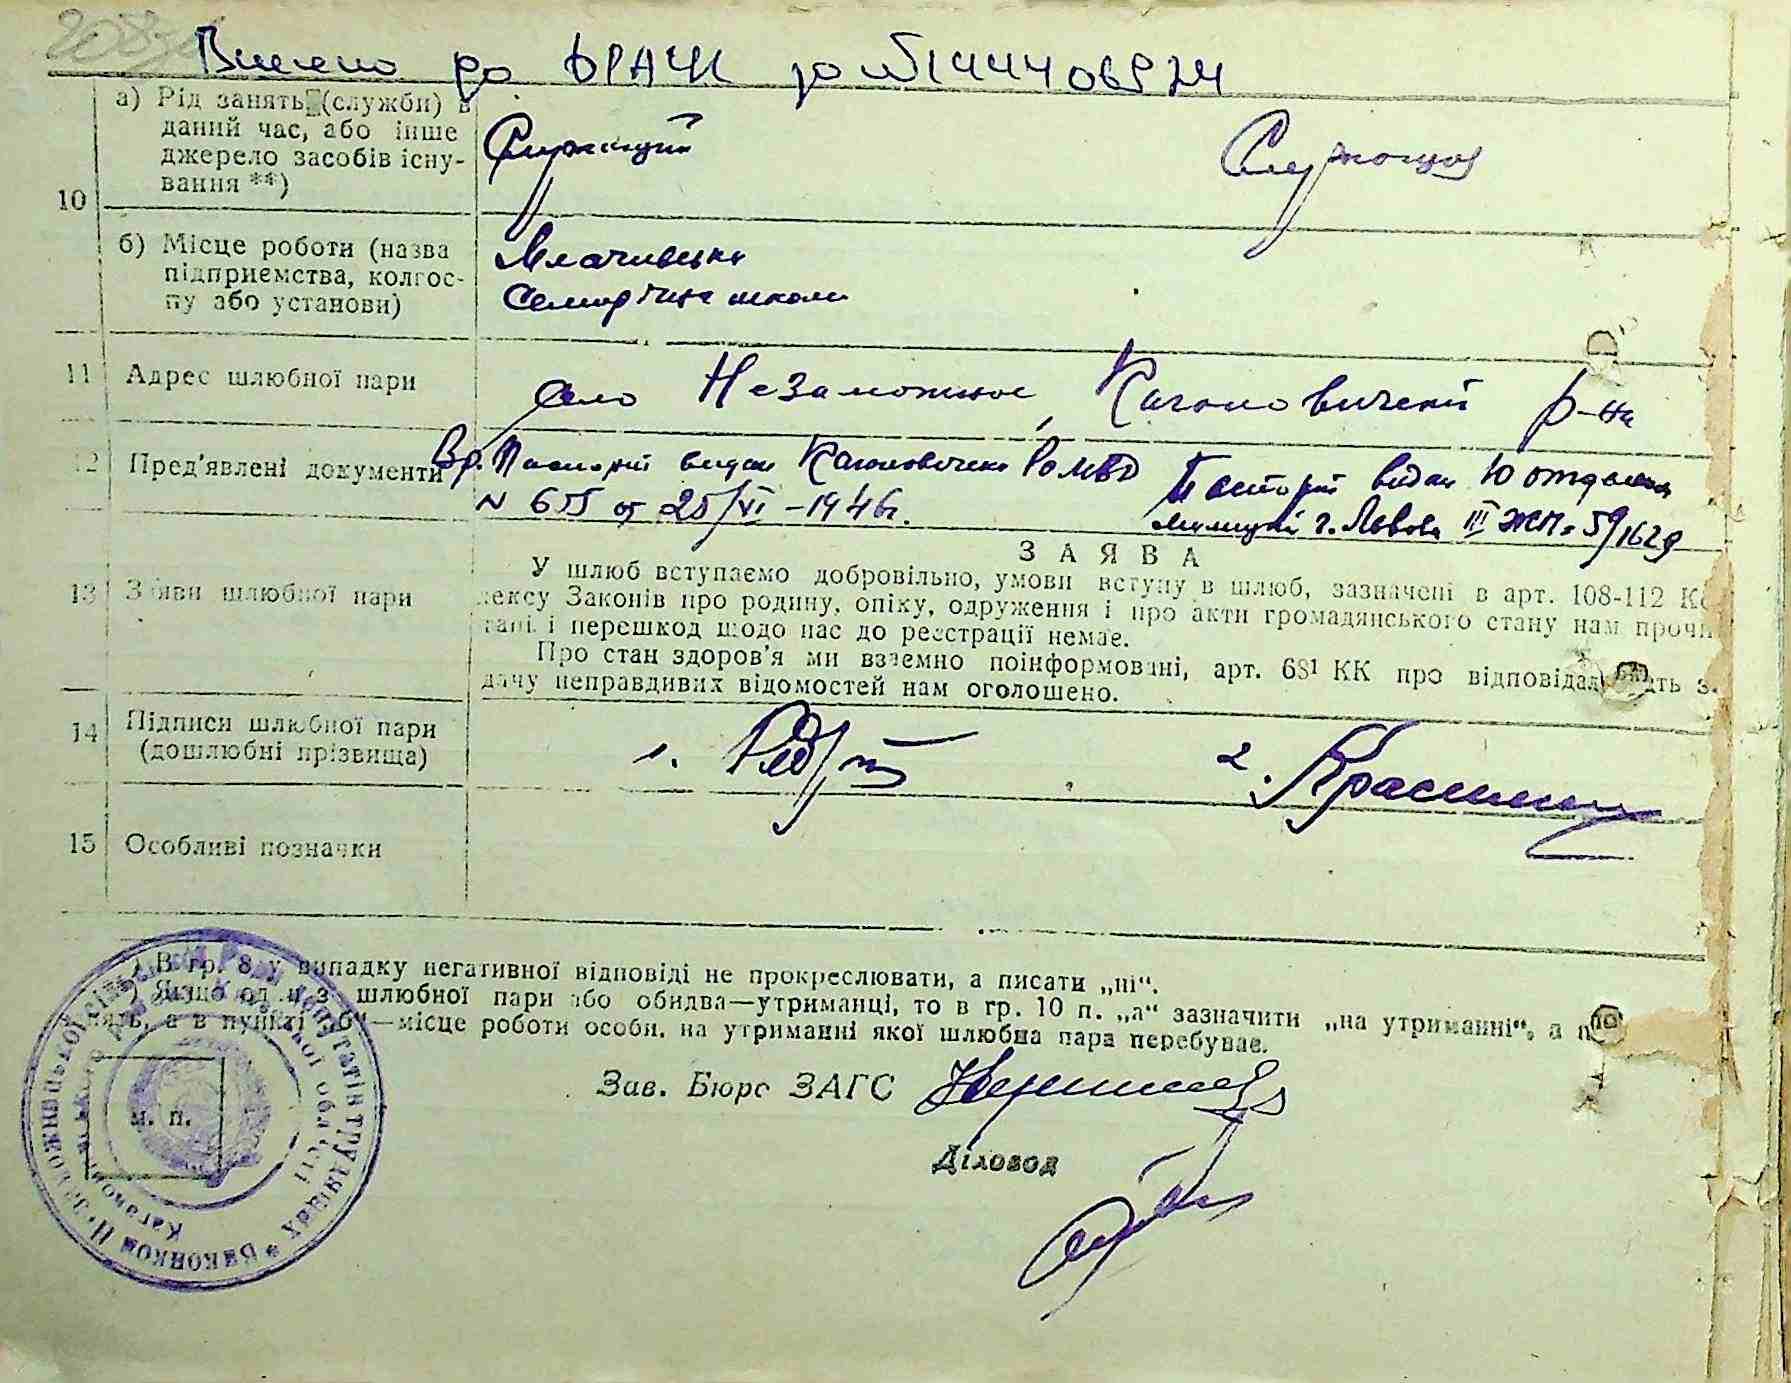 Внесено до ДРАЦС за №
10
а) Рід занять (служби) в
даний час, або інше
джерело засобів існу-
вання **)
Служащий
Служащая
б) Місце роботи (назва
підприємства, колгос-
пу або установи)
Млачивська
Семирічна школа
11
Адрес шлюбної пари
село Незаможное, Кагановический р-на
12
Пред'явлені документи
Вр. Паспорт видан РОМВД
N 655 от 25/VI - 1946г.
Паспорт видан 10 отделом
милиции г. Львова III ЖМ
13
Заяви шлюбної пари
ЗАЯВА
У шлюб вступаємо добровільно, умови вступу в шлюб, зазначені в арт. 108-112 Ко
дексу Законів про родину, опіку, одруження і про акти громадянського стану нам прочи
тані і перешкод щодо нас до реєстрації немає.
Про стан здоров'я ми взаємно поінформовані, арт. 68¹ КК про відповідал
дачу неправдивих відомостей нам оголошено.
14
Підписи шлюбної пари
(дошлюбні прізвища)
1.
2.
15
Особливі позначки
*) В гр. 8 у випадку негативної відповіді не прокреслювати, а писати „ні“.
**) Якщо один з шлюбної пари або обидва—утриманці, то в гр. 10 п. „а“ зазначити „на утриманні“, а п
нять, а в пункті „б“—місце роботи особи, на утриманні якої шлюбна пара перебуває.
Зав. Бюро ЗАГС
Діловод
м. п.